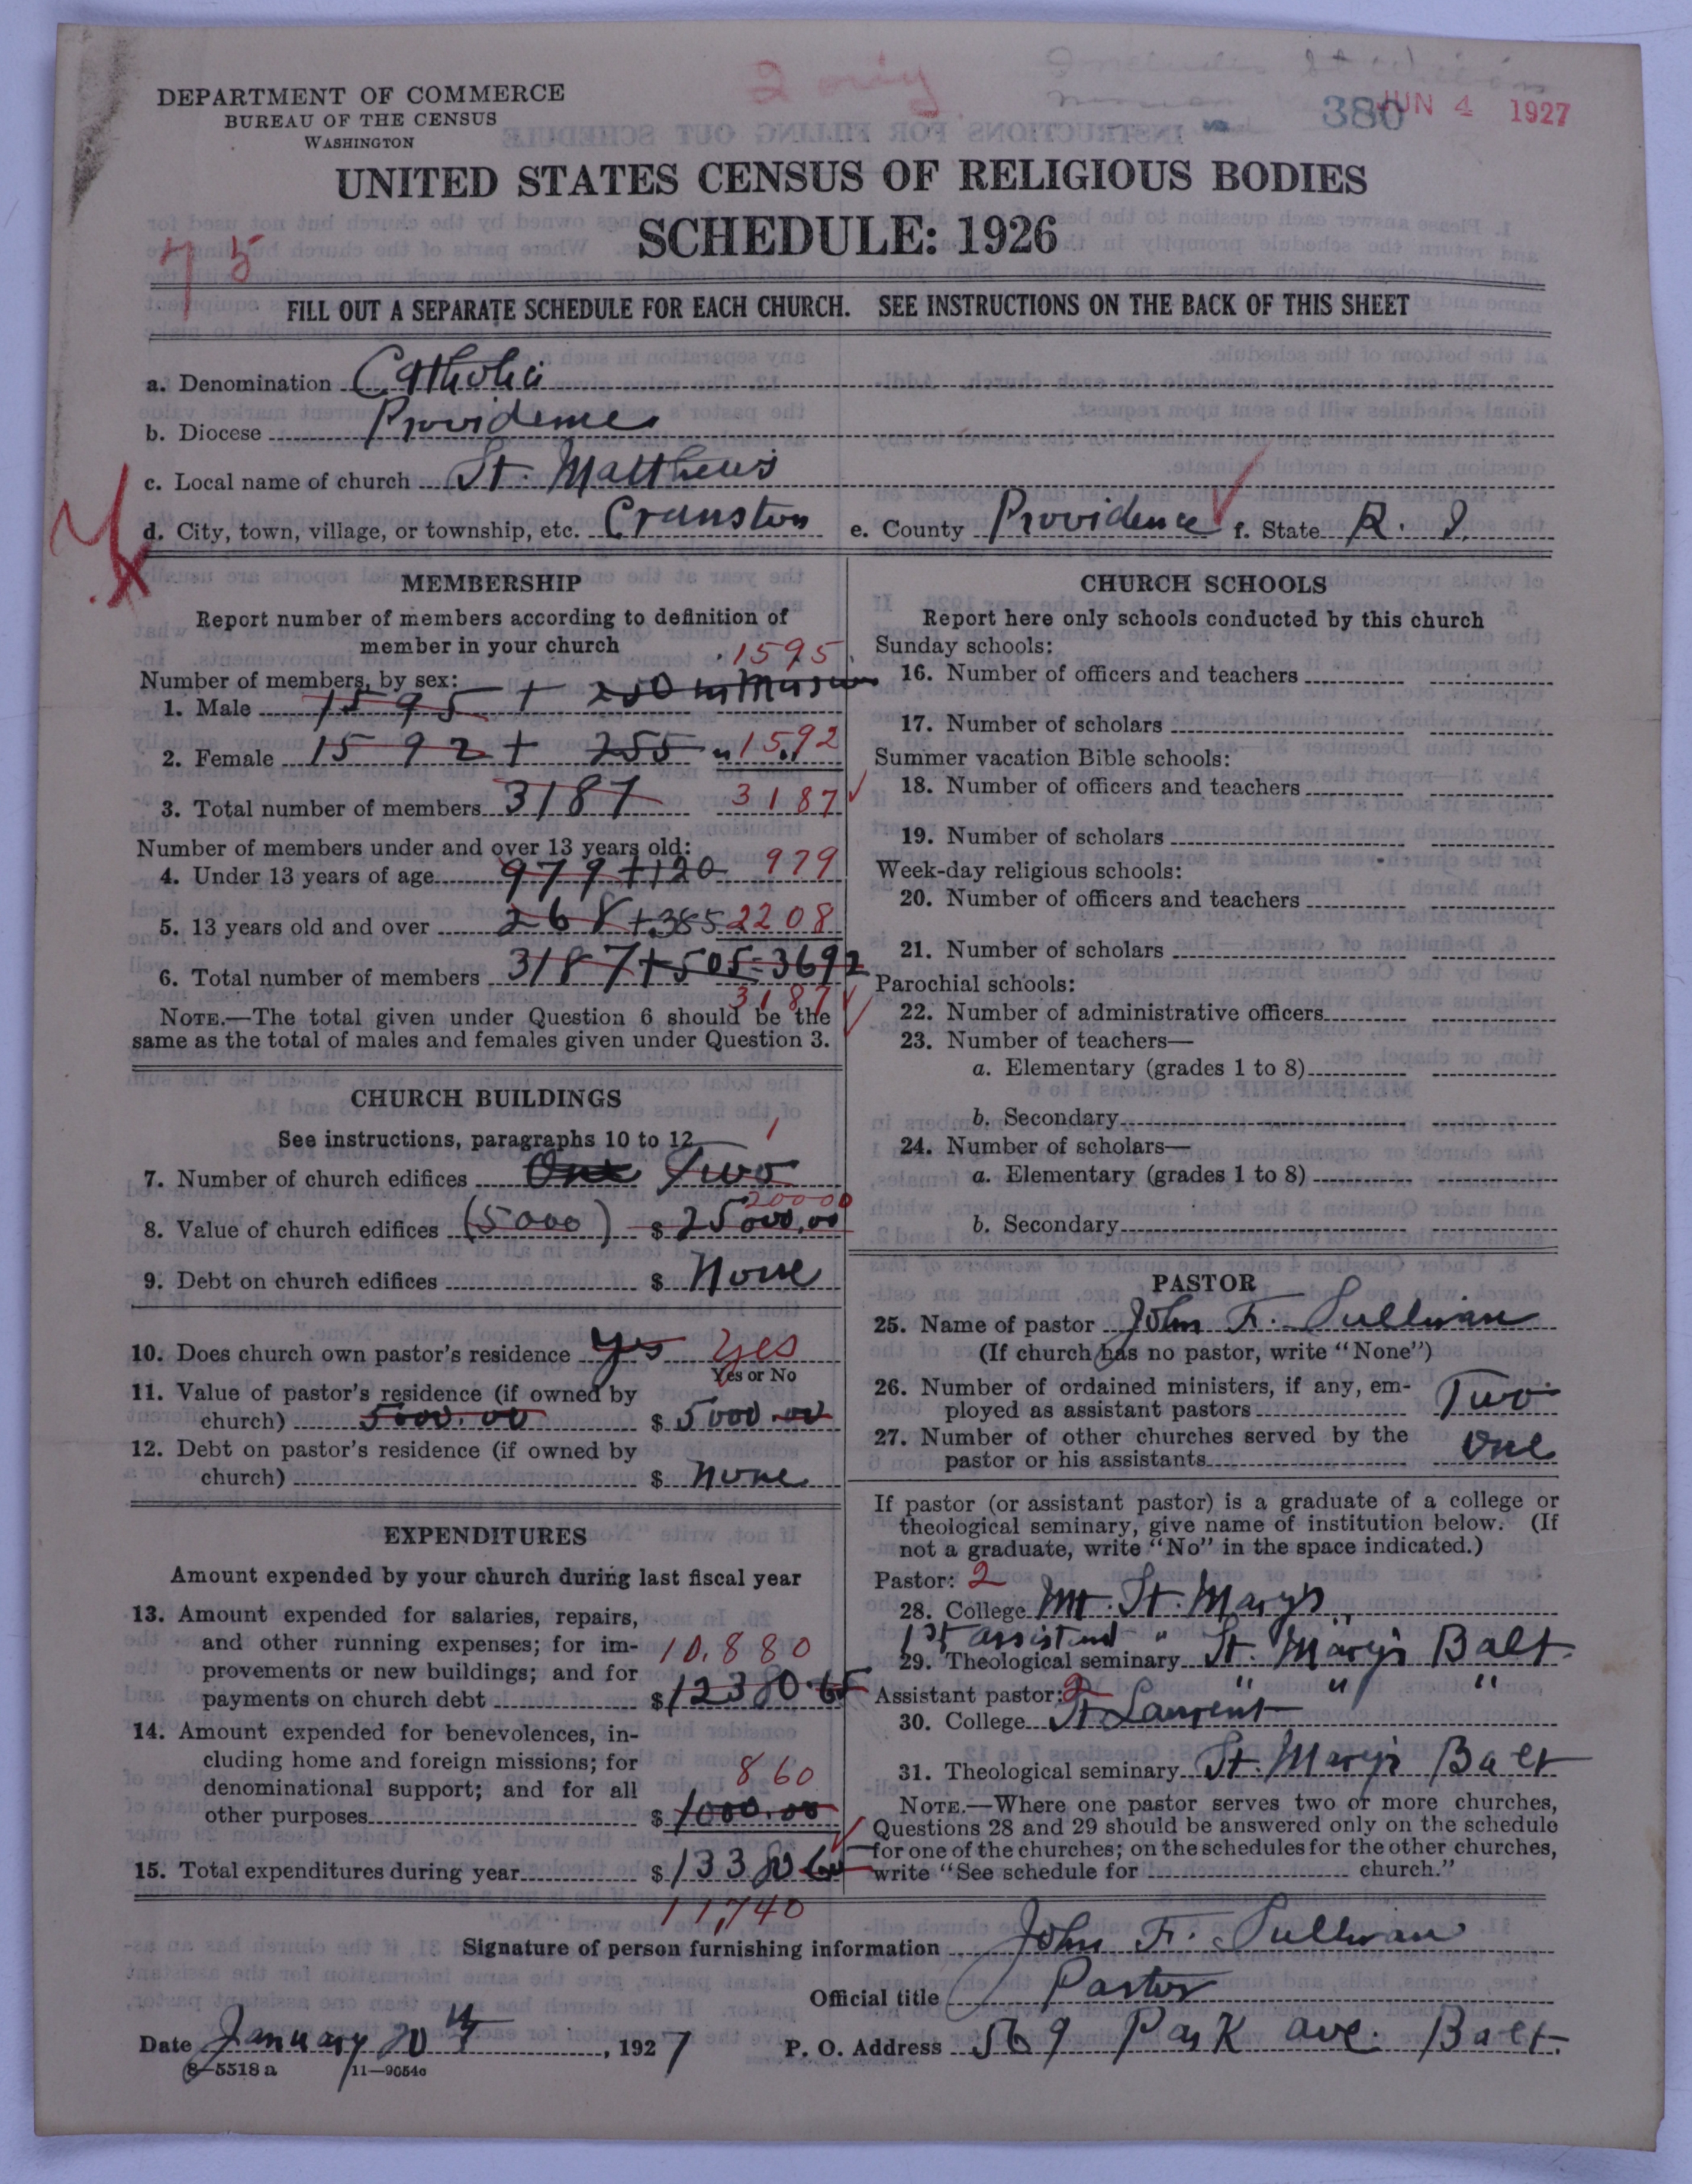 2 only
380 JUN 4 1927
DEPARTMENT OF COMMERCE
BUREAU OF THE CENSUS
WASHINGTON
UNITED STATES CENSUS OF RELIGIOUS BODIES
SCHEDULE: 1926
75
FILL OUT A SEPARATE SCHEDULE FOR EACH CHURCH. SEE INSTRUCTIONS ON THE BACK OF THIS SHEET
a. Denomination Catholic
b. Diocese Providence
c. Local name of church St. Matthews
d. City, town, village, or township, etc. Cranston e. County Providence f. State R. I.
MEMBERSHIP
Report number of members according to definition of
member in your church
1595
Number of members, by sex:
1. Male 1595 + 250 in Mission
2. Female 1592 + 255 " 1592
3. Total number of members 3187 3187
Number of members under and over 13 years old:
4. Under 13 years of age 979 + 120 979
5. 13 years old and over 268 + 385 2208
6. Total number of members 3187 + 505 = 3692
3187
NOTE.—The total given under Question 6 should be the
same as the total of males and females given under Question 3.
CHURCH BUILDINGS
See instructions, paragraphs 10 to 12
1
7. Number of church edifices One Two
20000
8. Value of church edifices (5000) $ 25000.00
9. Debt on church edifices $ None
10. Does church own pastor's residence yes Yes
Yes or No
11. Value of pastor's residence (if owned by
church) 5000.00 $ 5000.00
12. Debt on pastor's residence (if owned by
church) $ None
EXPENDITURES
Amount expended by your church during last fiscal year
13. Amount expended for salaries, repairs,
and other running expenses; for im- 10,880
provements or new buildings; and for
payments on church debt $ 12380.65
14. Amount expended for benevolences, in-
cluding home and foreign missions; for
denominational support; and for all 860
other purposes $ 1000.00
15. Total expenditures during year $ 13380
11,740
CHURCH SCHOOLS
Report here only schools conducted by this church
Sunday schools:
16. Number of officers and teachers
17. Number of scholars
Summer vacation Bible schools:
18. Number of officers and teachers
19. Number of scholars
Week-day religious schools:
20. Number of officers and teachers
21. Number of scholars
Parochial schools:
22. Number of administrative officers
23. Number of teachers—
a. Elementary (grades 1 to 8)
b. Secondary
24. Number of scholars—
a. Elementary (grades 1 to 8)
b. Secondary
PASTOR
25. Name of pastor John F. Sullivan
(If church has no pastor, write "None")
26. Number of ordained ministers, if any, em-
ployed as assistant pastors Two
27. Number of other churches served by the
pastor or his assistants One
If pastor (or assistant pastor) is a graduate of a college or
theological seminary, give name of institution below. (If
not a graduate, write "No" in the space indicated.)
Pastor: 2
28. College Mt. St. Marys
1st assistant " "
29. Theological seminary St. Mary's Balt.
Assistant pastor: 2 " " "
30. College St Laurent
31. Theological seminary St. Mary's Balt
NOTE.—Where one pastor serves two or more churches,
Questions 28 and 29 should be answered only on the schedule
for one of the churches; on the schedules for the other churches,
write "See schedule for church."
Signature of person furnishing information John F. Sullivan
Official title Pastor
Date January 20th, 1927 P. O. Address 569 Park ave. Balt.
8—5518a 11—9054a